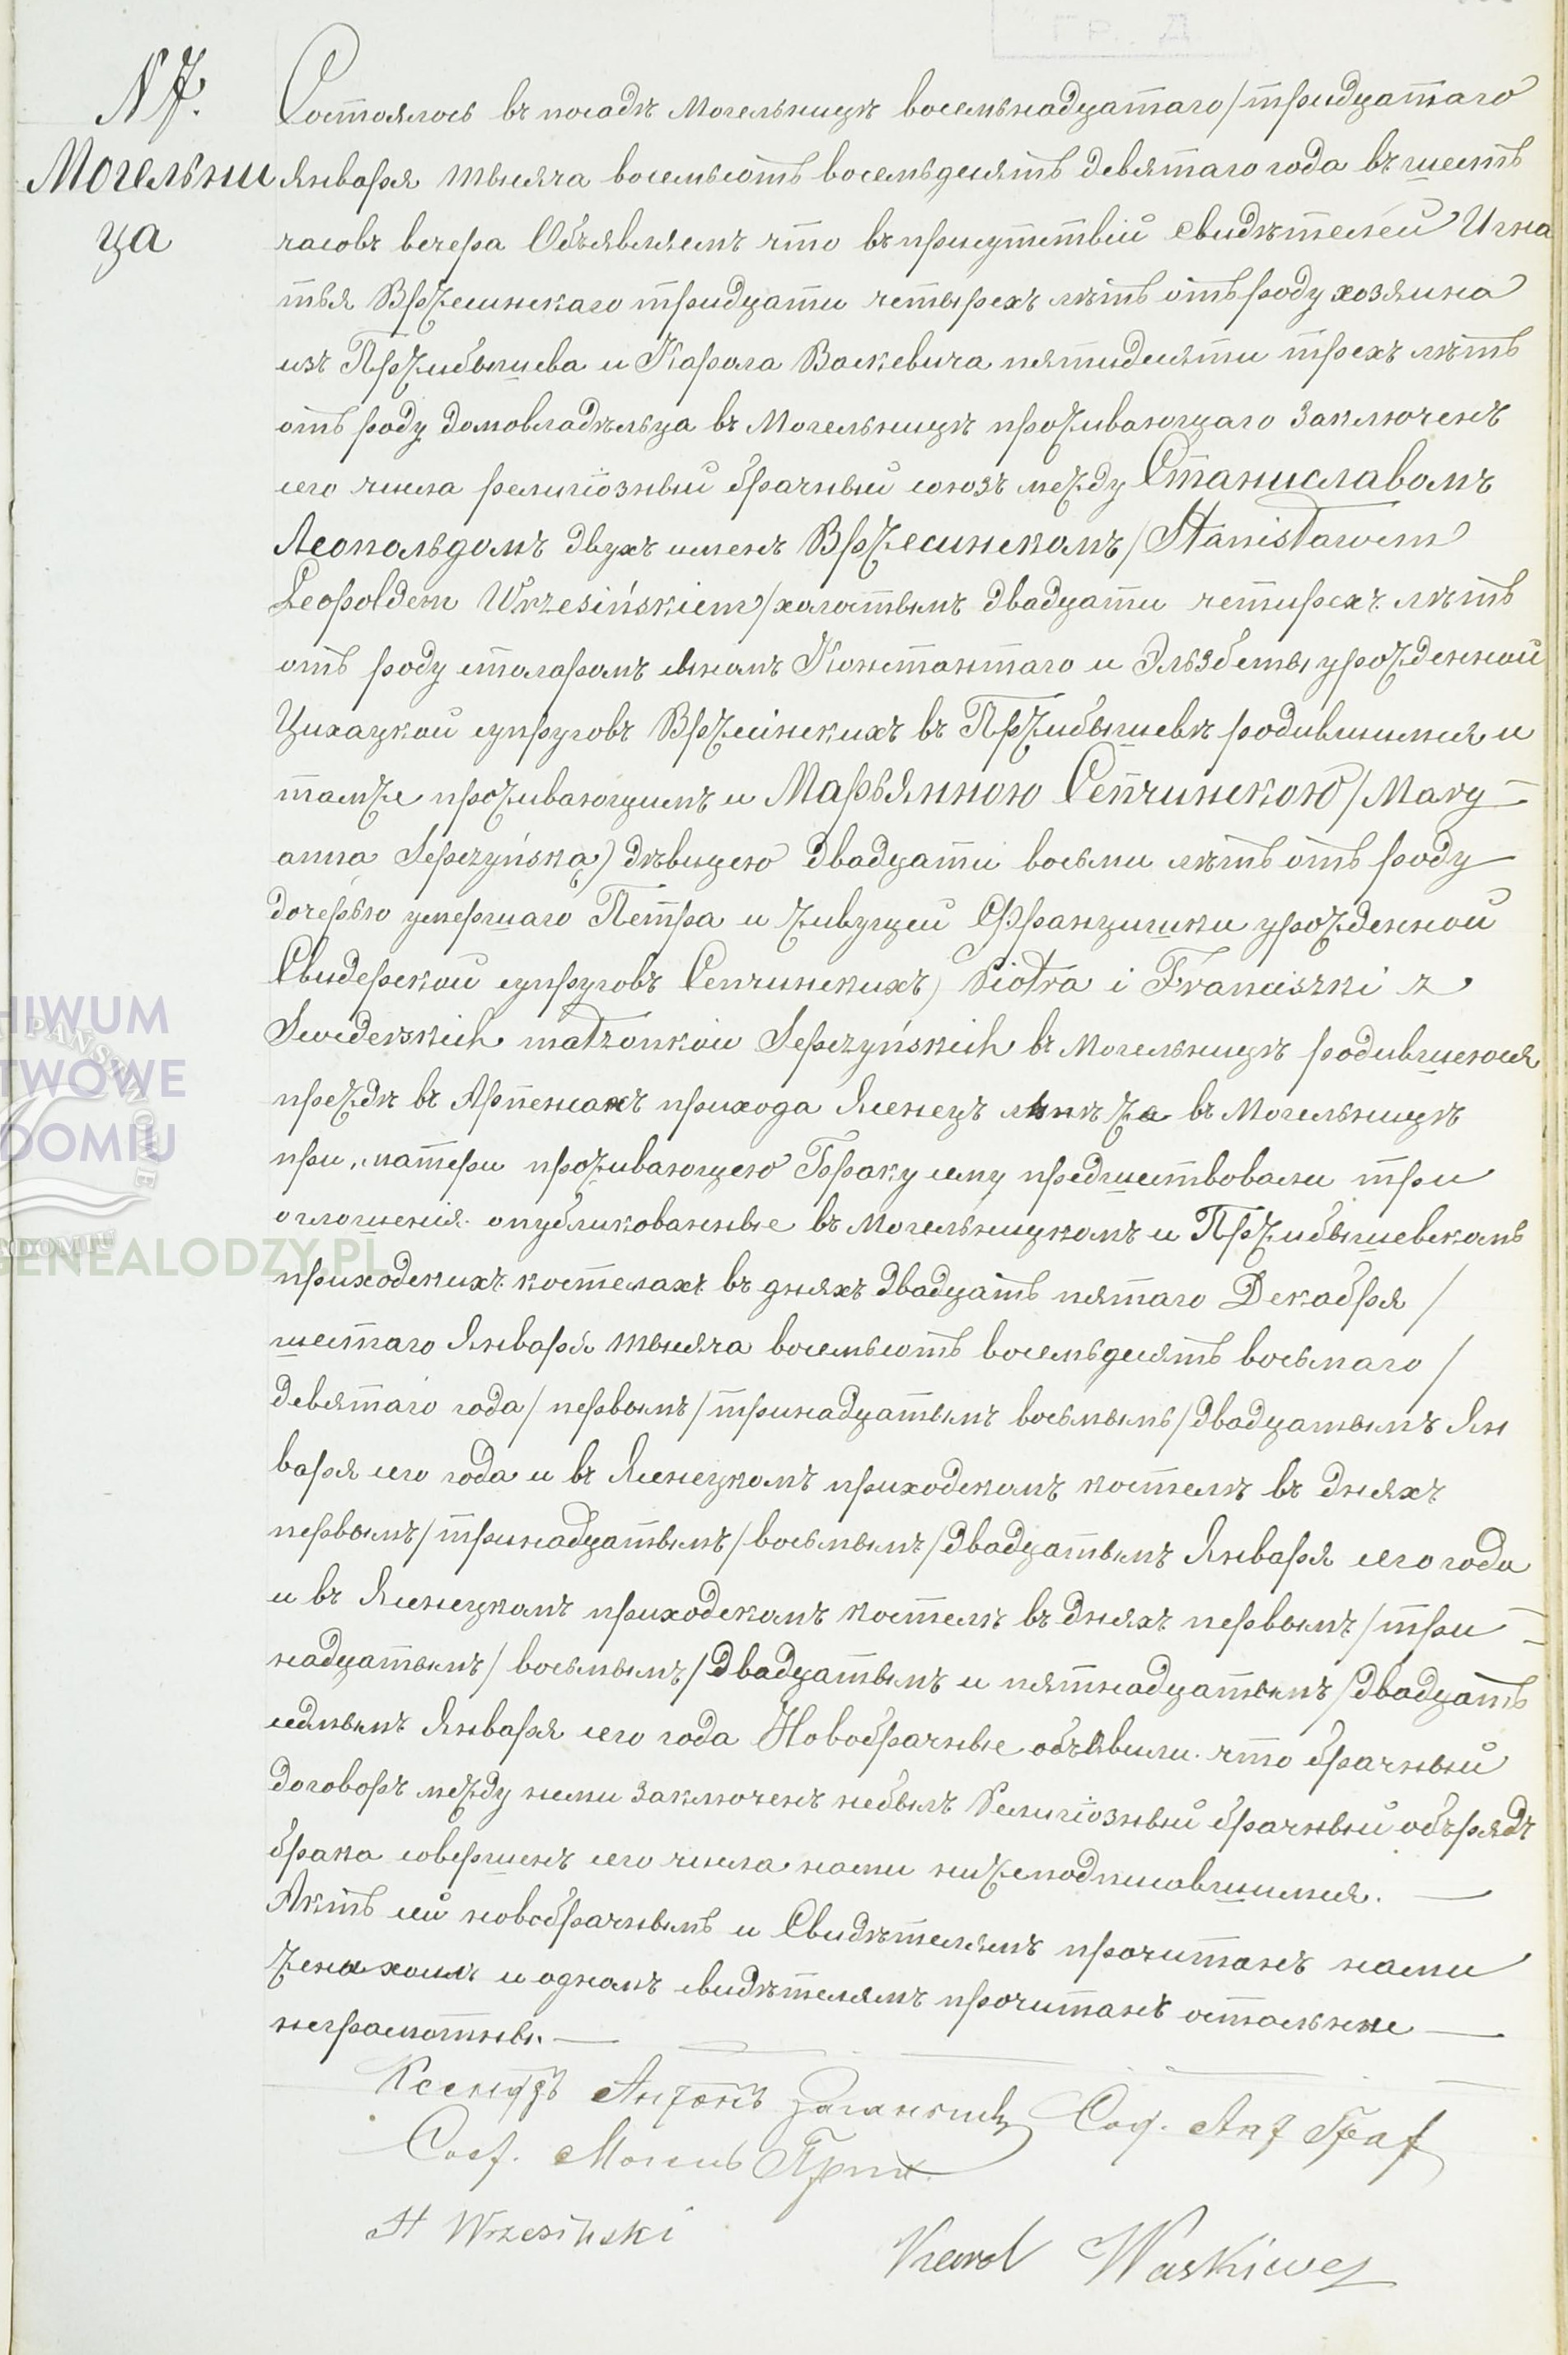 N 7.
Могельни
ца
Состоялось въ посадѣ Могельницѣ восемьнадцатаго/тридцатаго
Января тысяча восемьсотъ восемьдесятъ девятаго года въ шесть
часовъ вечера Объявляемъ что въ присутствіи свидѣтелей Игна
тія Вржесинскаго тридцати четырехъ лѣтъ отъ роду хозяина
изъ Пржибышева и Кароля Васкевича пятидесяти трехъ лѣтъ
отъ роду домовладѣльца въ Могельницѣ проживающаго заключенъ
сего числа религіозный брачный союзъ между Станиславомъ
Леопольдомъ двухъ именъ Вржесинскомъ/Stanisławem
Leopoldem Wrzesińskiem/холостымъ двадцати четирехъ лѣтъ
отъ роду столяромъ сыномъ Константаго и Эльзбеты урожденной
Цихацкой супруговъ Вржесінскихъ въ Пржибышевѣ родившимся и
тамже проживающимъ и Марьянною Сепчинскою/Mary-
anna Sepczyńską) дѣвицею двадцати восьми лѣтъ отъ роду
дочерью умершаго Петра и живущей Францишки урожденной
Свидерской супруговъ Сепчинскихъ) Piotra i Franciszki z
Swiderskich małżonków Sepczyńskich въ Могельницѣ родившеюся
прежде въ прихода Ясенецъ въ Могельницѣ
при матери проживающею Браку сему предшествовали три
оглошенія опубликованные въ Могельницкомъ и Пржибышевскомъ
приходскихъ костелахъ въ дняхъ двадцать пятаго Декабря /
шестаго Января тысяча восемьсотъ восемьдесятъ восьмаго /
девятаго года / первымъ / тринадцатымъ восьмымъ / двадцатымъ Ян
варя сего года и въ Ясенецкомъ приходскомъ костелѣ въ дняхъ
первымъ / тринадцатымъ / восьмымъ / двадцатымъ Января сего года
и въ Ясенецкомъ приходскомъ костелѣ въ дняхъ первымъ / три-
надцатымъ / восьмымъ / двадцатымъ и пятнадцатымъ / двадцать
седмымъ Января сего года Новобрачные объявили что брачный
договоръ между ними заключенъ небылъ Религіозный брачный обърядъ
брака совершенъ сего числа нами нижеподписавшимися.
Актъ сей новобрачнымъ и Свидѣтелямъ прочитанъ нами
женихомъ и одномъ свидѣтелямъ прочитанъ остальные
неграмотны.
Ксендзъ Антонъ
Сод.
St Wrzesiński
Karol Waskiewcz
HIWUM
TWOWE
DOMIU
GENEALODZY.PL